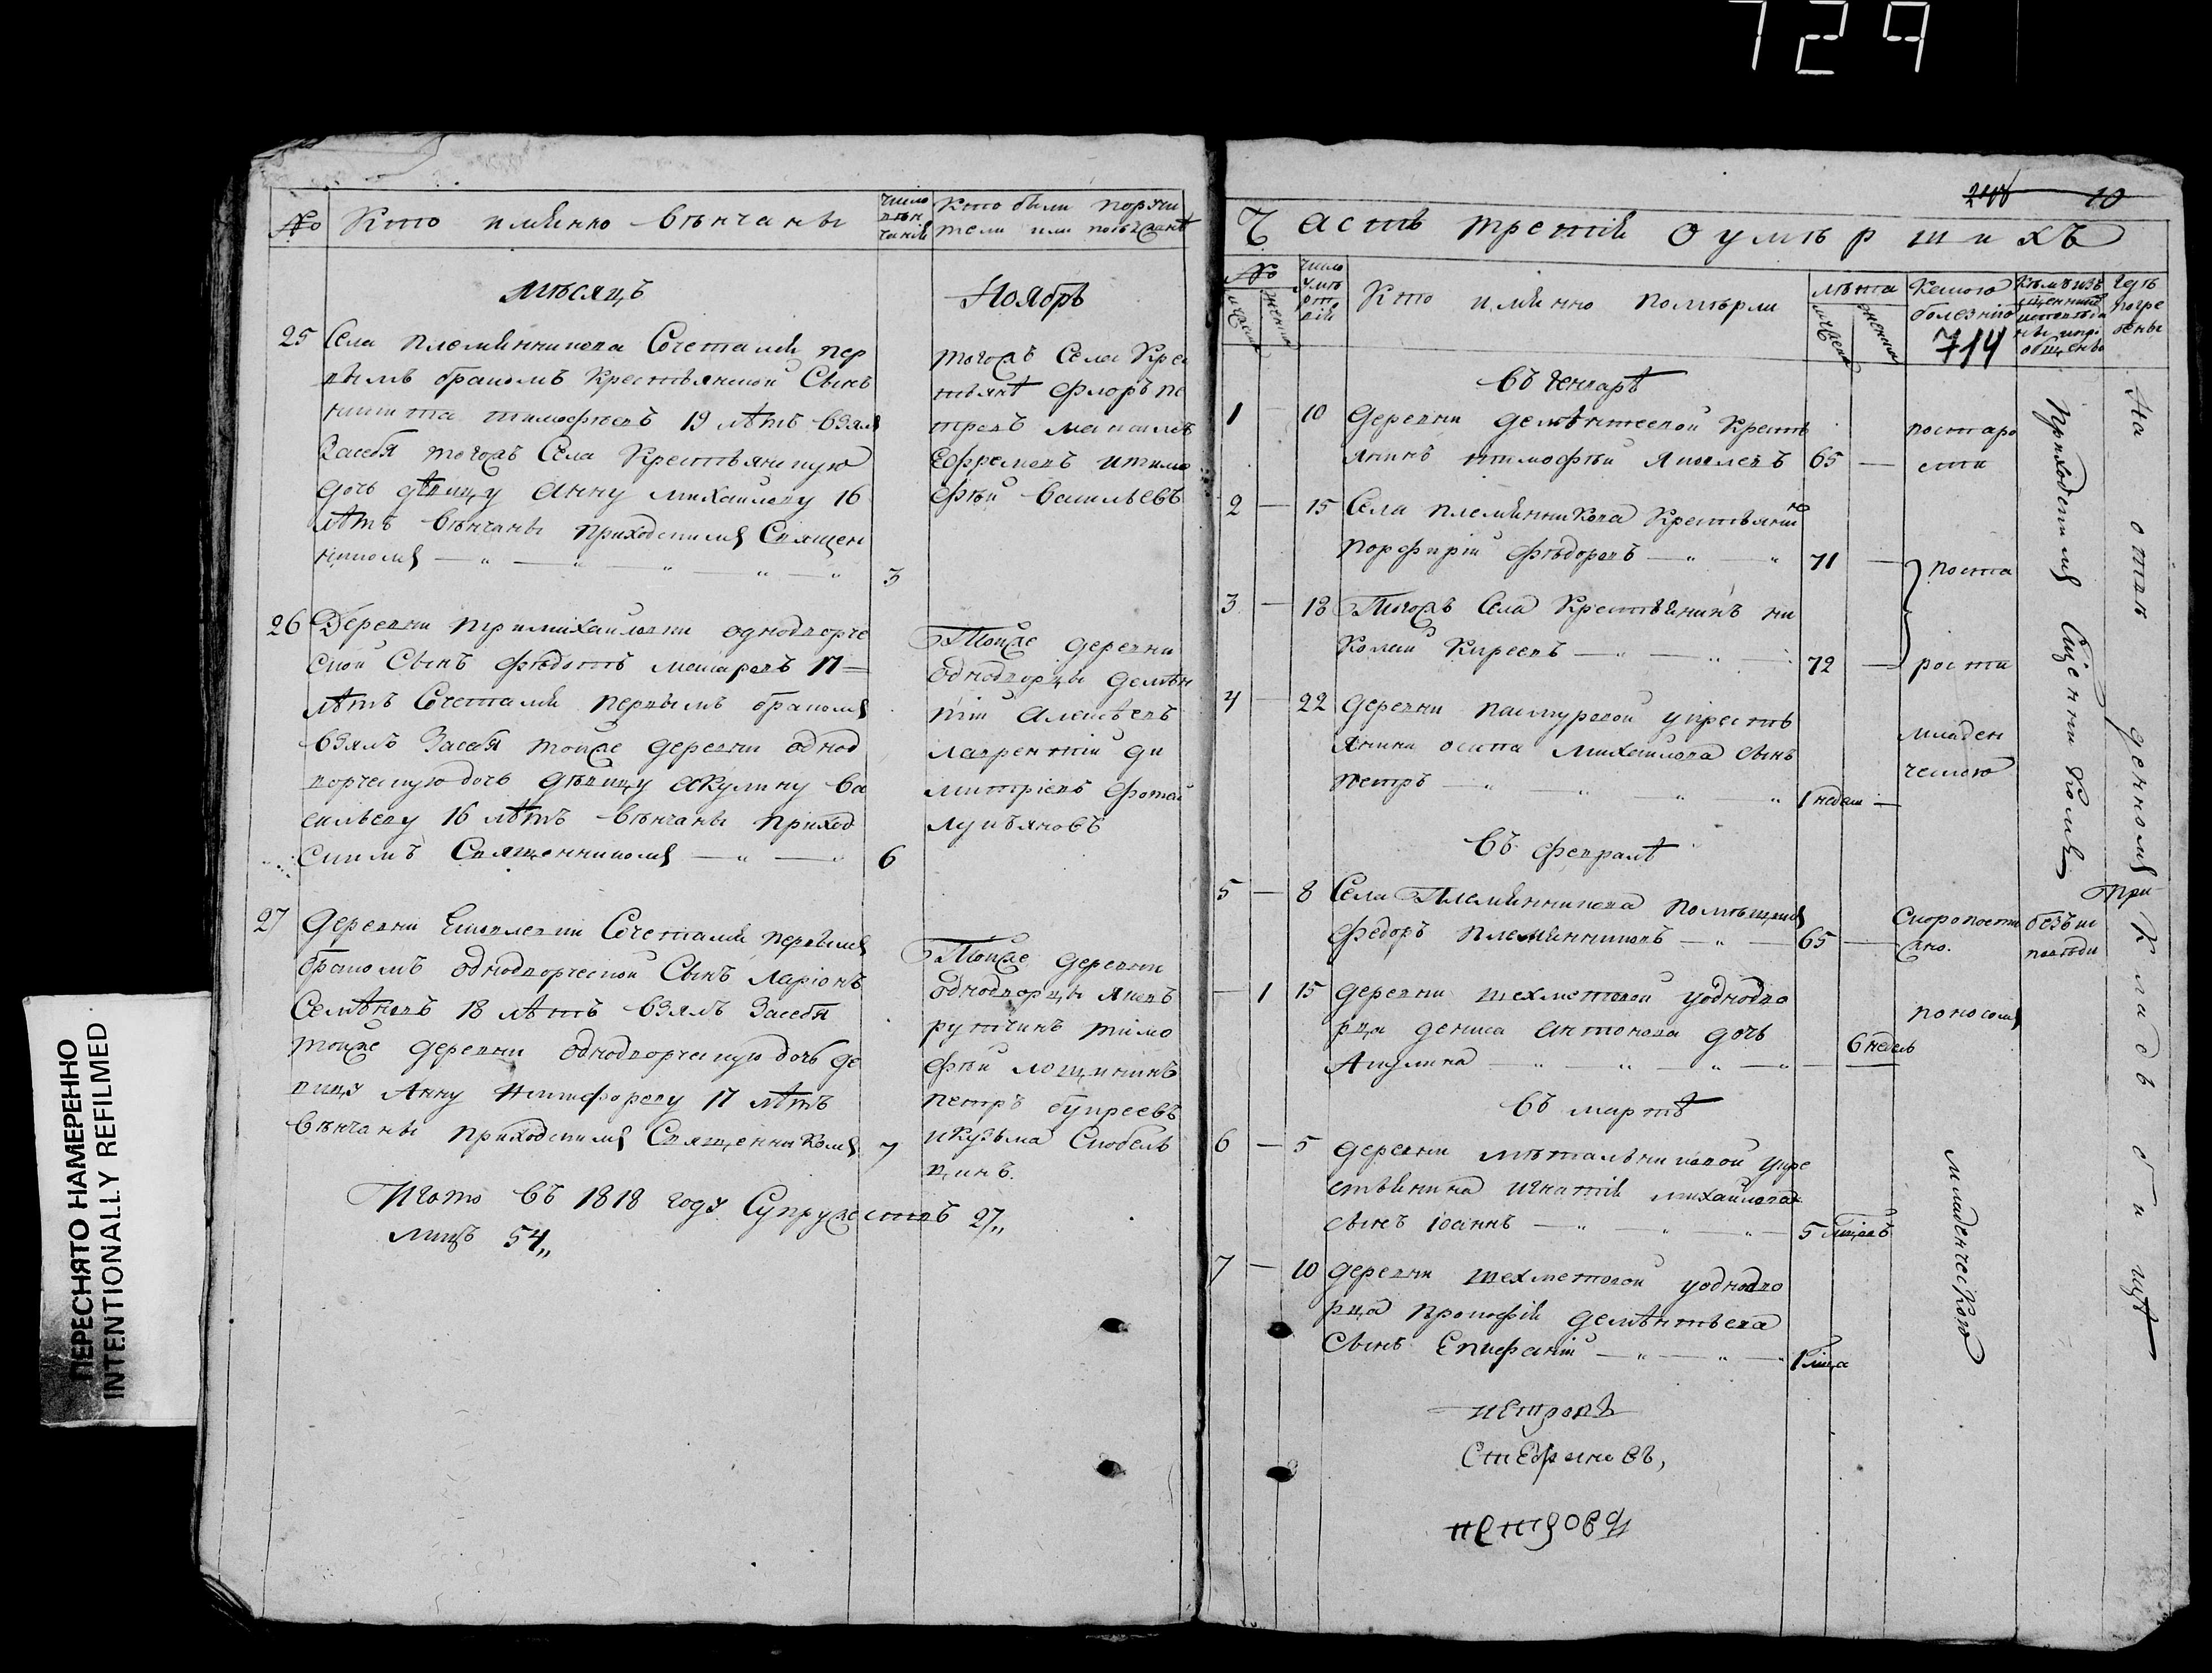 729
№ Кто имянно венчаны
число вѣнчанiй
Кто были поручители или поѣзжанѣ
мѣсяцъ
Ноябрь
25 Села племянникова Сочетался пер
вымъ бракомъ Крестьянской Сынъ
никита тимофеевъ 19 лѣтъ взялъ
Засебя тогожъ Села Крестьянскую
дочь дѣвицу Анну михайлову 16
лѣтъ вѣнчаны приходскимъ Священ
никомъ 3
тогожъ Села Крес
тьянѣ флоръ пе
тровъ
Ефремовъ итимо
фѣй васильевъ
26 Деревни однодворче
ской Сынъ 17
лѣтъ Сочетался первымъ бракомъ
взялъ Засебя тойже деревни однод
ворческую дочь дѣвицу Акулину ва
сильеву 16 лѣтъ вѣнчаны приход
скимъ Священникомъ 6
Тойже деревни
однодворцы демѣн
тiй Алексѣевъ
лаврентiй ди
митрiевъ фотей
лукъяновъ
27 деревни Сочетался первымъ
бракомъ однодворческой Сынъ Ларiонъ
Семѣновъ 18 лѣтъ взялъ Засебя
тойже деревни однодворческую дочь де
вицу Анну Никифорову 17 лѣтъ
вѣнчаны приходскимъ Священникомъ 7
Тойже деревни
однодворцы яковъ
тимо
фѣй
петръ букреевъ
икузьма Скобель
цинъ.
Итого въ 1818 году Супружествъ 27„
лицъ 54„
10
Часть третiя оумѣршихъ
№
число умѣртвiй
Кто имянно помѣрли
лѣта
Какою болезнiю
714
Кемъ изъ священниковъ исповѣданы и прiобщены
Гдѣ погребены
въ генварѣ
1 — 10 деревни дементеевой Кресть
янинъ тимофѣй яковлевъ 65 —
постаро
сти
2 — 15 Села племянникова Крестьянинъ
порфирiй фѣдоровъ 71 —
поста
3 — 18 Тогожъ Села Крестьянинъ ни
колай Киреевъ 72 —
рости
4 — 22 деревни укресть
янина осипа михайлова сынъ
петръ 1 недели —
младен
ческою
въ февралѣ
5 — 8 Села Племянникова помѣщикъ
Федоръ племянниковъ 65 —
Скоропости
жно.
безъ ис
поведи
— 1 15 деревни шехметовой уоднодво
рца дениса антонова дочь
Акулина — 6 недель
поносомъ
въ мартѣ
6 — 5 деревни мѣтальниковой укре
стьянина игнатiя михайлова
сынъ iоаннъ 5 мцовъ
7 — 10 деревни шехметовой уоднодво
рца прокофiя демѣнтьева
Сынъ Епифанiй 1 мца
младенческою
Приходскимъ
На отведенномъ
при
кладбищѣ
петровъ
петровъ
ПЕРЕСНЯТО НАМЕРЕННО
INTENTIONALLY REFILMED